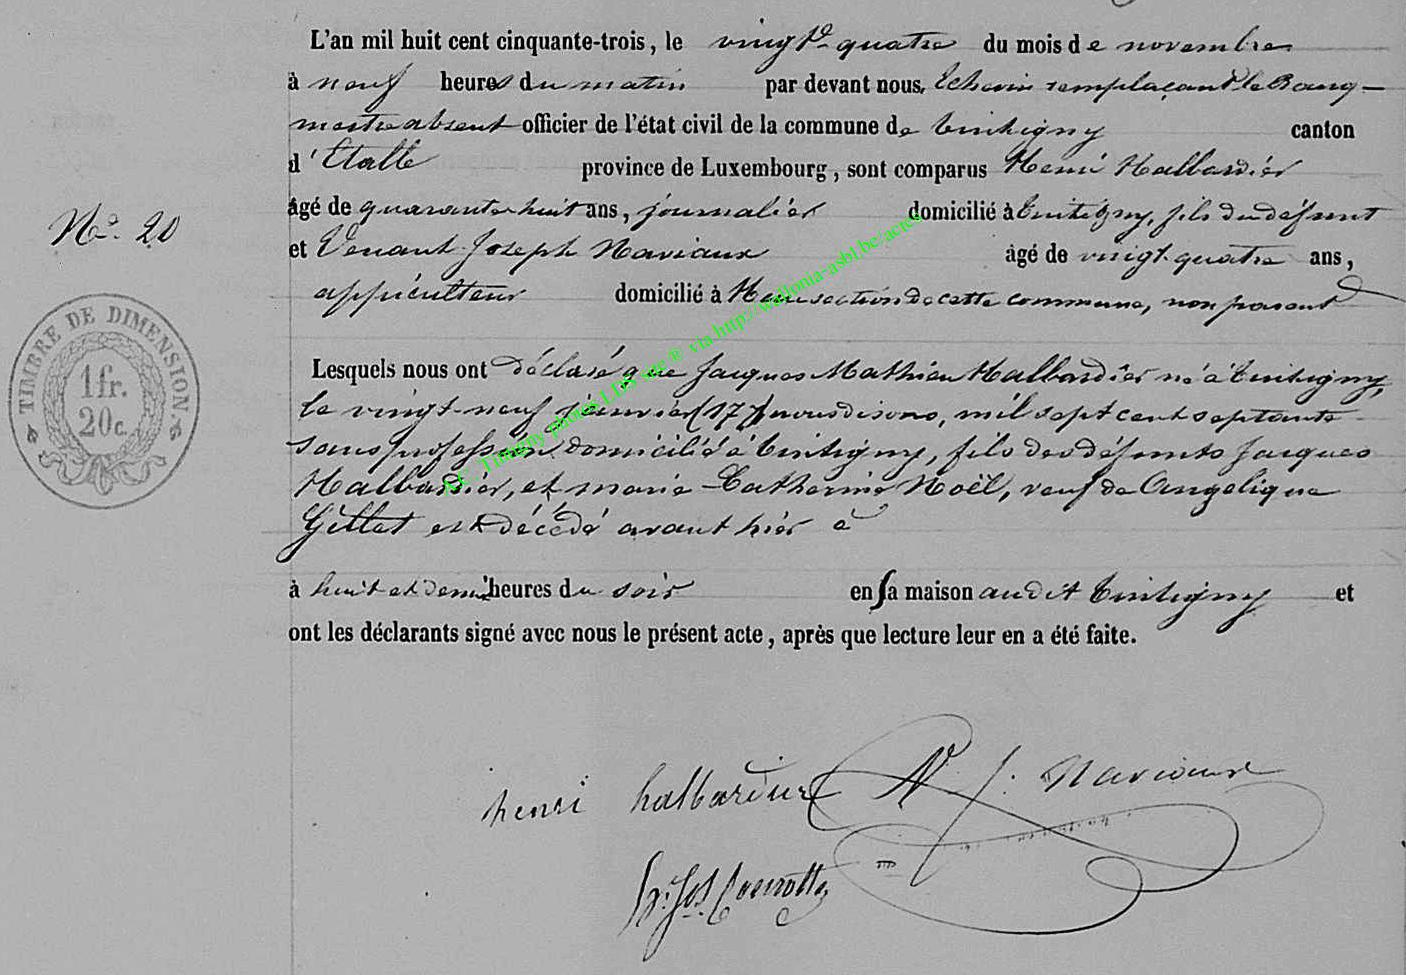 L'an mil huit cent cinquante-trois, le vingt-quatre du mois de novembre
à neuf heures du matin par devant nous, Echevin remplaçant le Bourg-
mestre absent officier de l'état civil de la commune de Tintigny canton
d'Etalle province de Luxembourg, sont comparus Henri Halbardier
âgé de quarante huit ans, journalier domicilié à Tintigny, fils du défunt
N° 20
et Venant Joseph Naviaux âgé de vingt-quatre ans,
appiculteur domicilié à section de cette commune, non parent
Lesquels nous ont déclaré que Jacques Mathieu Halbardier né à Tintigny,
le vingt-neuf janvier (177) nous disons, mil sept cent septante
sans profession, domicilié à Tintigny, fils des défunts Jacques
Halbardier, et marie Catherine Noël, veuf de Angelique
Gillet est décédé avant hier à
à huit et demi heures du soir en sa maison audit Tintigny et
ont les déclarants signé avec nous le présent acte, après que lecture leur en a été faite.
TIMBRE DE DIMENSION.
1 fr.
20 c.
A.C. Tintigny photos LDS site ® via http://wallonia-asbl.be/acres
henri halbardier V. J. Naviaux